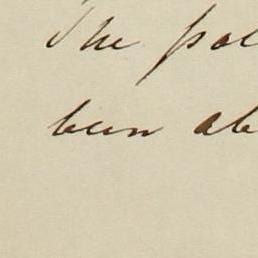 The pol
been ab